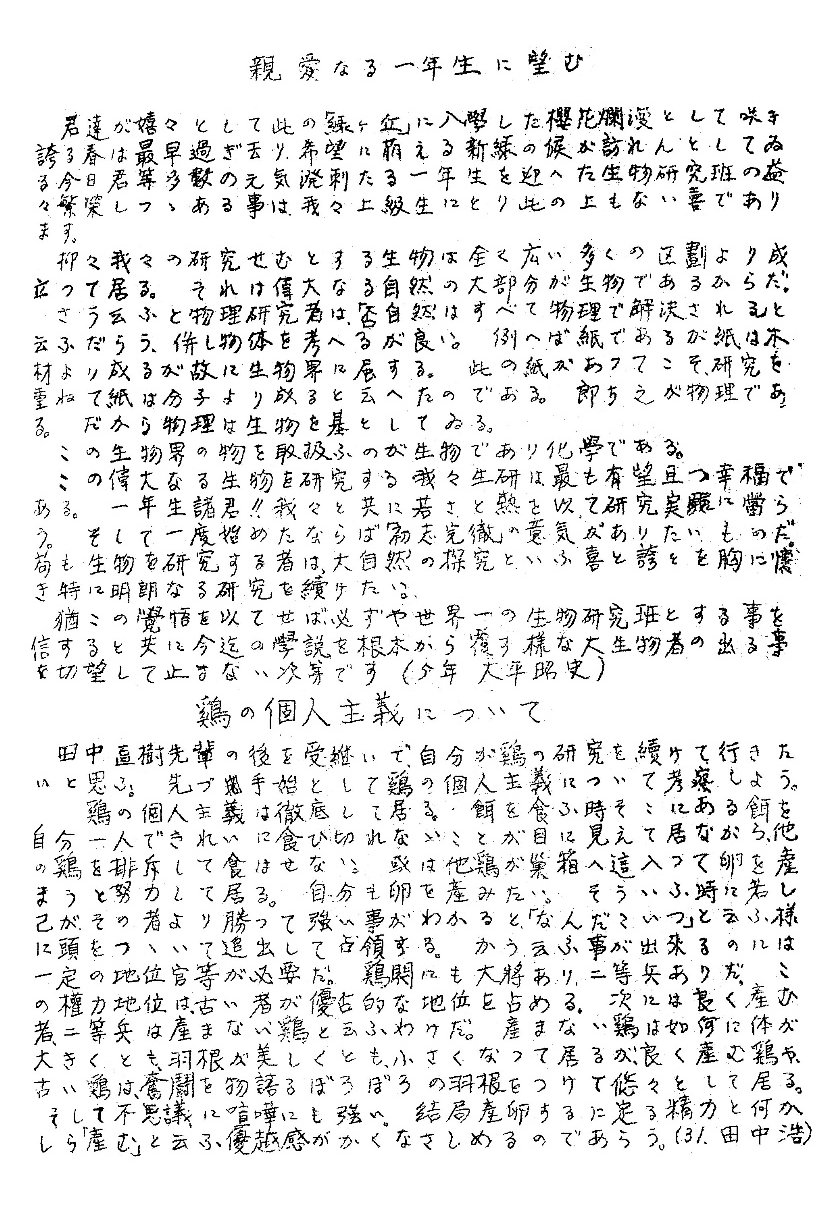 親愛なる一年生に望む
君達が嬉々として此の「緑ヶ丘」に入學した櫻花が爛漫として咲き
誇る春は最早過ぎ去り希望に萌える新緑の候が訪れんとしてゐ
る今日君等多数の元気溌剌たる一年生を迎へた生物研究班の益
々繁榮しつゝある事は我々上級生にとり此の上もない喜であり
ます。
抑々我々の研究せむとする生物は全く広い多くの区劃より成
立つて居る。それは偉大なる自然の大部分が生物であるからだ。
さう云ふと物理研究者は「否自然はすべて物理で解決される」と
云ふだらう、併し物体を考へるが良い。例へば紙であるが紙は木
材より成るが故に生物界に展する。此の紙があつてこそ研究をあ
重ねて紙は分子より成ると云へたのである。即ち之が物理であ
る。だから物理は生物を基としてゐる。
この生物界の物を取扱ふのが生物であり化學である。
この偉大なる生物を研究する我々生研は最も有望且つ幸福で
ある。一年生諸君!!我々と共に若さと熱を以て研究実驗に當ら

う。そして一度始めたなら「初志完徹」の意気がありたいものだ。
苟も生物を研究する者は、大自然の探究といふ喜と誇とを胸に懐
き特に明朗なる研究を續けたい。
猶この覺悟を以てせば必ずや世界一の生物研究班とする事を
信ずると共に今迄の學説を根本から覆す様な大生物者の出る事
を切望して止まない次第です(少年 大平昭史)
鶏の個人主義について
田中直樹先輩の後を受継いで、自分が鶏の研究を續けて行きた
いと思ふ。先づ手始として鶏の個人主義について考察しよう。
鶏の個人主義は徹底して居る。餌を食ふ時そこにある餌を
自分一人できれいに食び切れないことが目に見えて居ながら、他
の鶏を排斥して食はせない。或は他鶏が巣箱へ這入つて卵を産
まうと努力して居る。自分も卵を産みたい。そういふ時に若し
己がその者より勝つて強い事がわかると、「なんだこいつ」と云ふ様
に頭をつゝいて追出して占領する。かう云ふ事が出來るのは
一定の地位官等が必要だ。鶏閥にも大將あり、二等兵ありだ。こ
の權力地位は、古者が優占的な地位を占める。次には良く産む
者二等兵は産まない鶏と云ふわけだ。産まない鶏は如何に体が
大きくとも、羽根が美しくとも、小さくなつて居るが良く産む鶏がやる。
古い鶏は、奮闘を物語るぼろぼろの羽根をつけて悠々として居る。
そして不思議に喧嘩にも強い。結局産卵するに足る精力と何か
しら「産む」と云ふ優越感がかくなさしめるのであらう。(31. 田中浩)